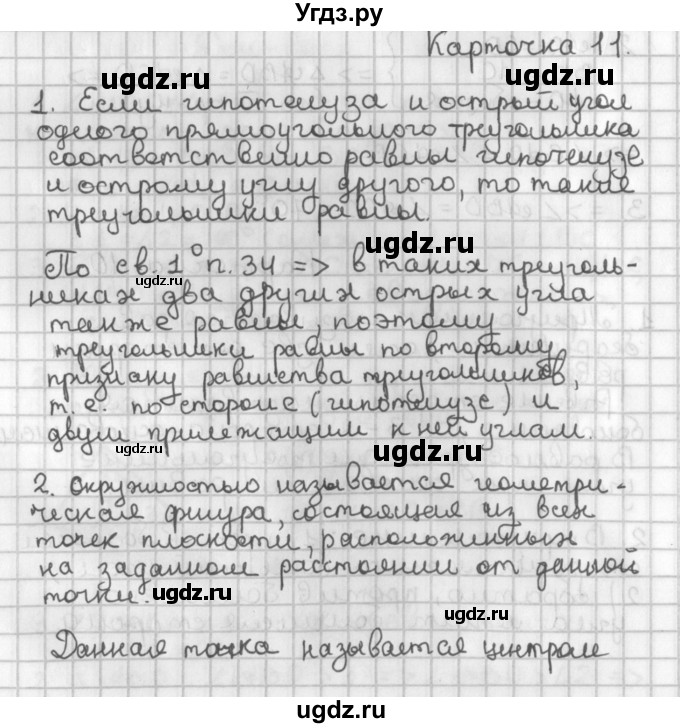 Угдз.ру
Карточка 11.
ugdz.ru
1. Если гипотенуза и острый угол
одного прямоугольного треугольника
ugdz.ru ugdz.ru
соответственно равны гипотенузе
и острому углу другого, то такие
треугольники равны.
ugdz.ru
По св. 1° п. 34 => в таких треуголь-
ugdz.ru
никах два других острых угла
также равны, поэтому
ugdz.ru
треугольники равны по второму
признаку равенства треугольников,
т.е. по стороне (гипотенузе) и
двум прилежащим к ней углам.
ugdz.ru ugdz.ru
2. Окружностью называется геометри-
ческая фигура, состоящая из всех
ugdz.ru
точек плоскости, расположенных
на заданном расстоянии от данной
точки.
ugdz.ru ugdz.ru
Данная точка называется центром
ugdz.ru